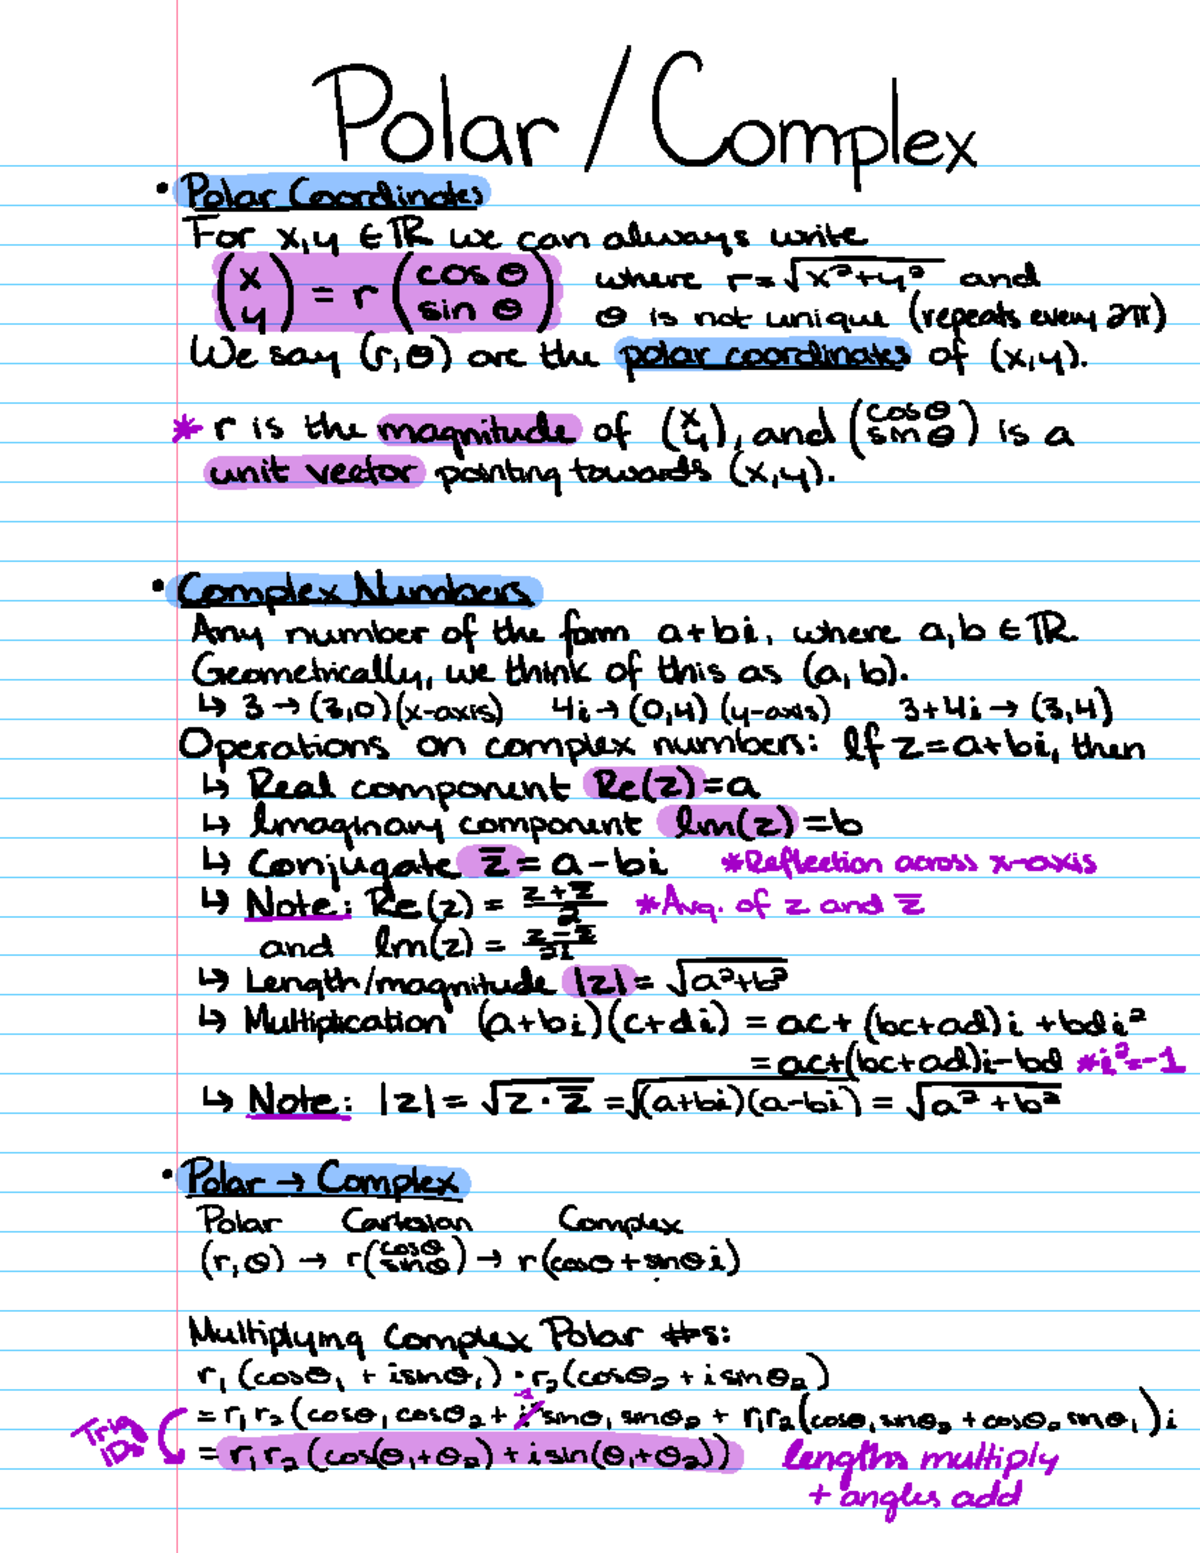 Polar / Complex
• Polar Coordinates
For x,y ∈ ℝ we can always write
(x y) = r (cos θ sin θ) where r = √(x²+y²) and
θ is not unique (repeats every 2π)
We say (r,θ) are the polar coordinates of (x,y).
* r is the magnitude of (x y), and (cosθ sinθ) is a
unit vector pointing towards (x,y).
• Complex Numbers
Any number of the form a+bi, where a,b ∈ ℝ.
Geometrically, we think of this as (a,b).
↳ 3 → (3,0) (x-axis) 4i → (0,4) (y-axis) 3+4i → (3,4)
Operations on complex numbers: If z=a+bi, then
↳ Real component Re(z)=a
↳ Imaginary component Im(z)=b
↳ Conjugate z̅ = a-bi *Reflection across x-axis
↳ Note: Re(z) = (z+z̅)/2 *Avg. of z and z̅
and Im(z) = (z-z̅)/2i
↳ Length/magnitude |z| = √(a²+b²)
↳ Multiplication (a+bi)(c+di) = ac+(bc+ad)i+bdi²
= ac+(bc+ad)i-bd *i²=-1
↳ Note: |z| = √(z·z̅) = √((a+bi)(a-bi)) = √(a²+b²)
• Polar → Complex
Polar Cartesian Complex
(r,θ) → r(cosθ sinθ) → r(cosθ+sinθi)
Multiplying Complex Polar #s:
r₁(cosθ₁ + isinθ₁)·r₂(cosθ₂ + isinθ₂)
-1
= r₁r₂(cosθ₁cosθ₂ + i²sinθ₁sinθ₂ + r₁r₂(cosθ₁sinθ₂ + cosθ₂sinθ₁)i
Trig IDs
= r₁r₂(cos(θ₁+θ₂) + isin(θ₁+θ₂)) lengths multiply
+ angles add